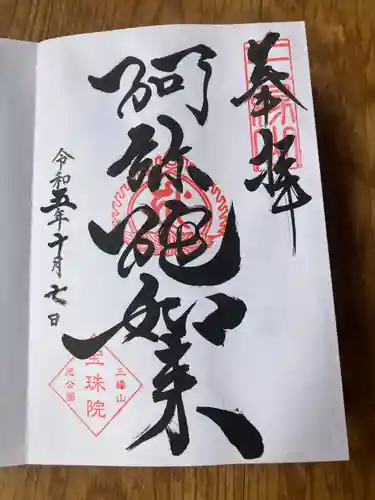 奉拝
阿弥陀如来
令和五年十月七日
三峰山
宝珠院
池公園